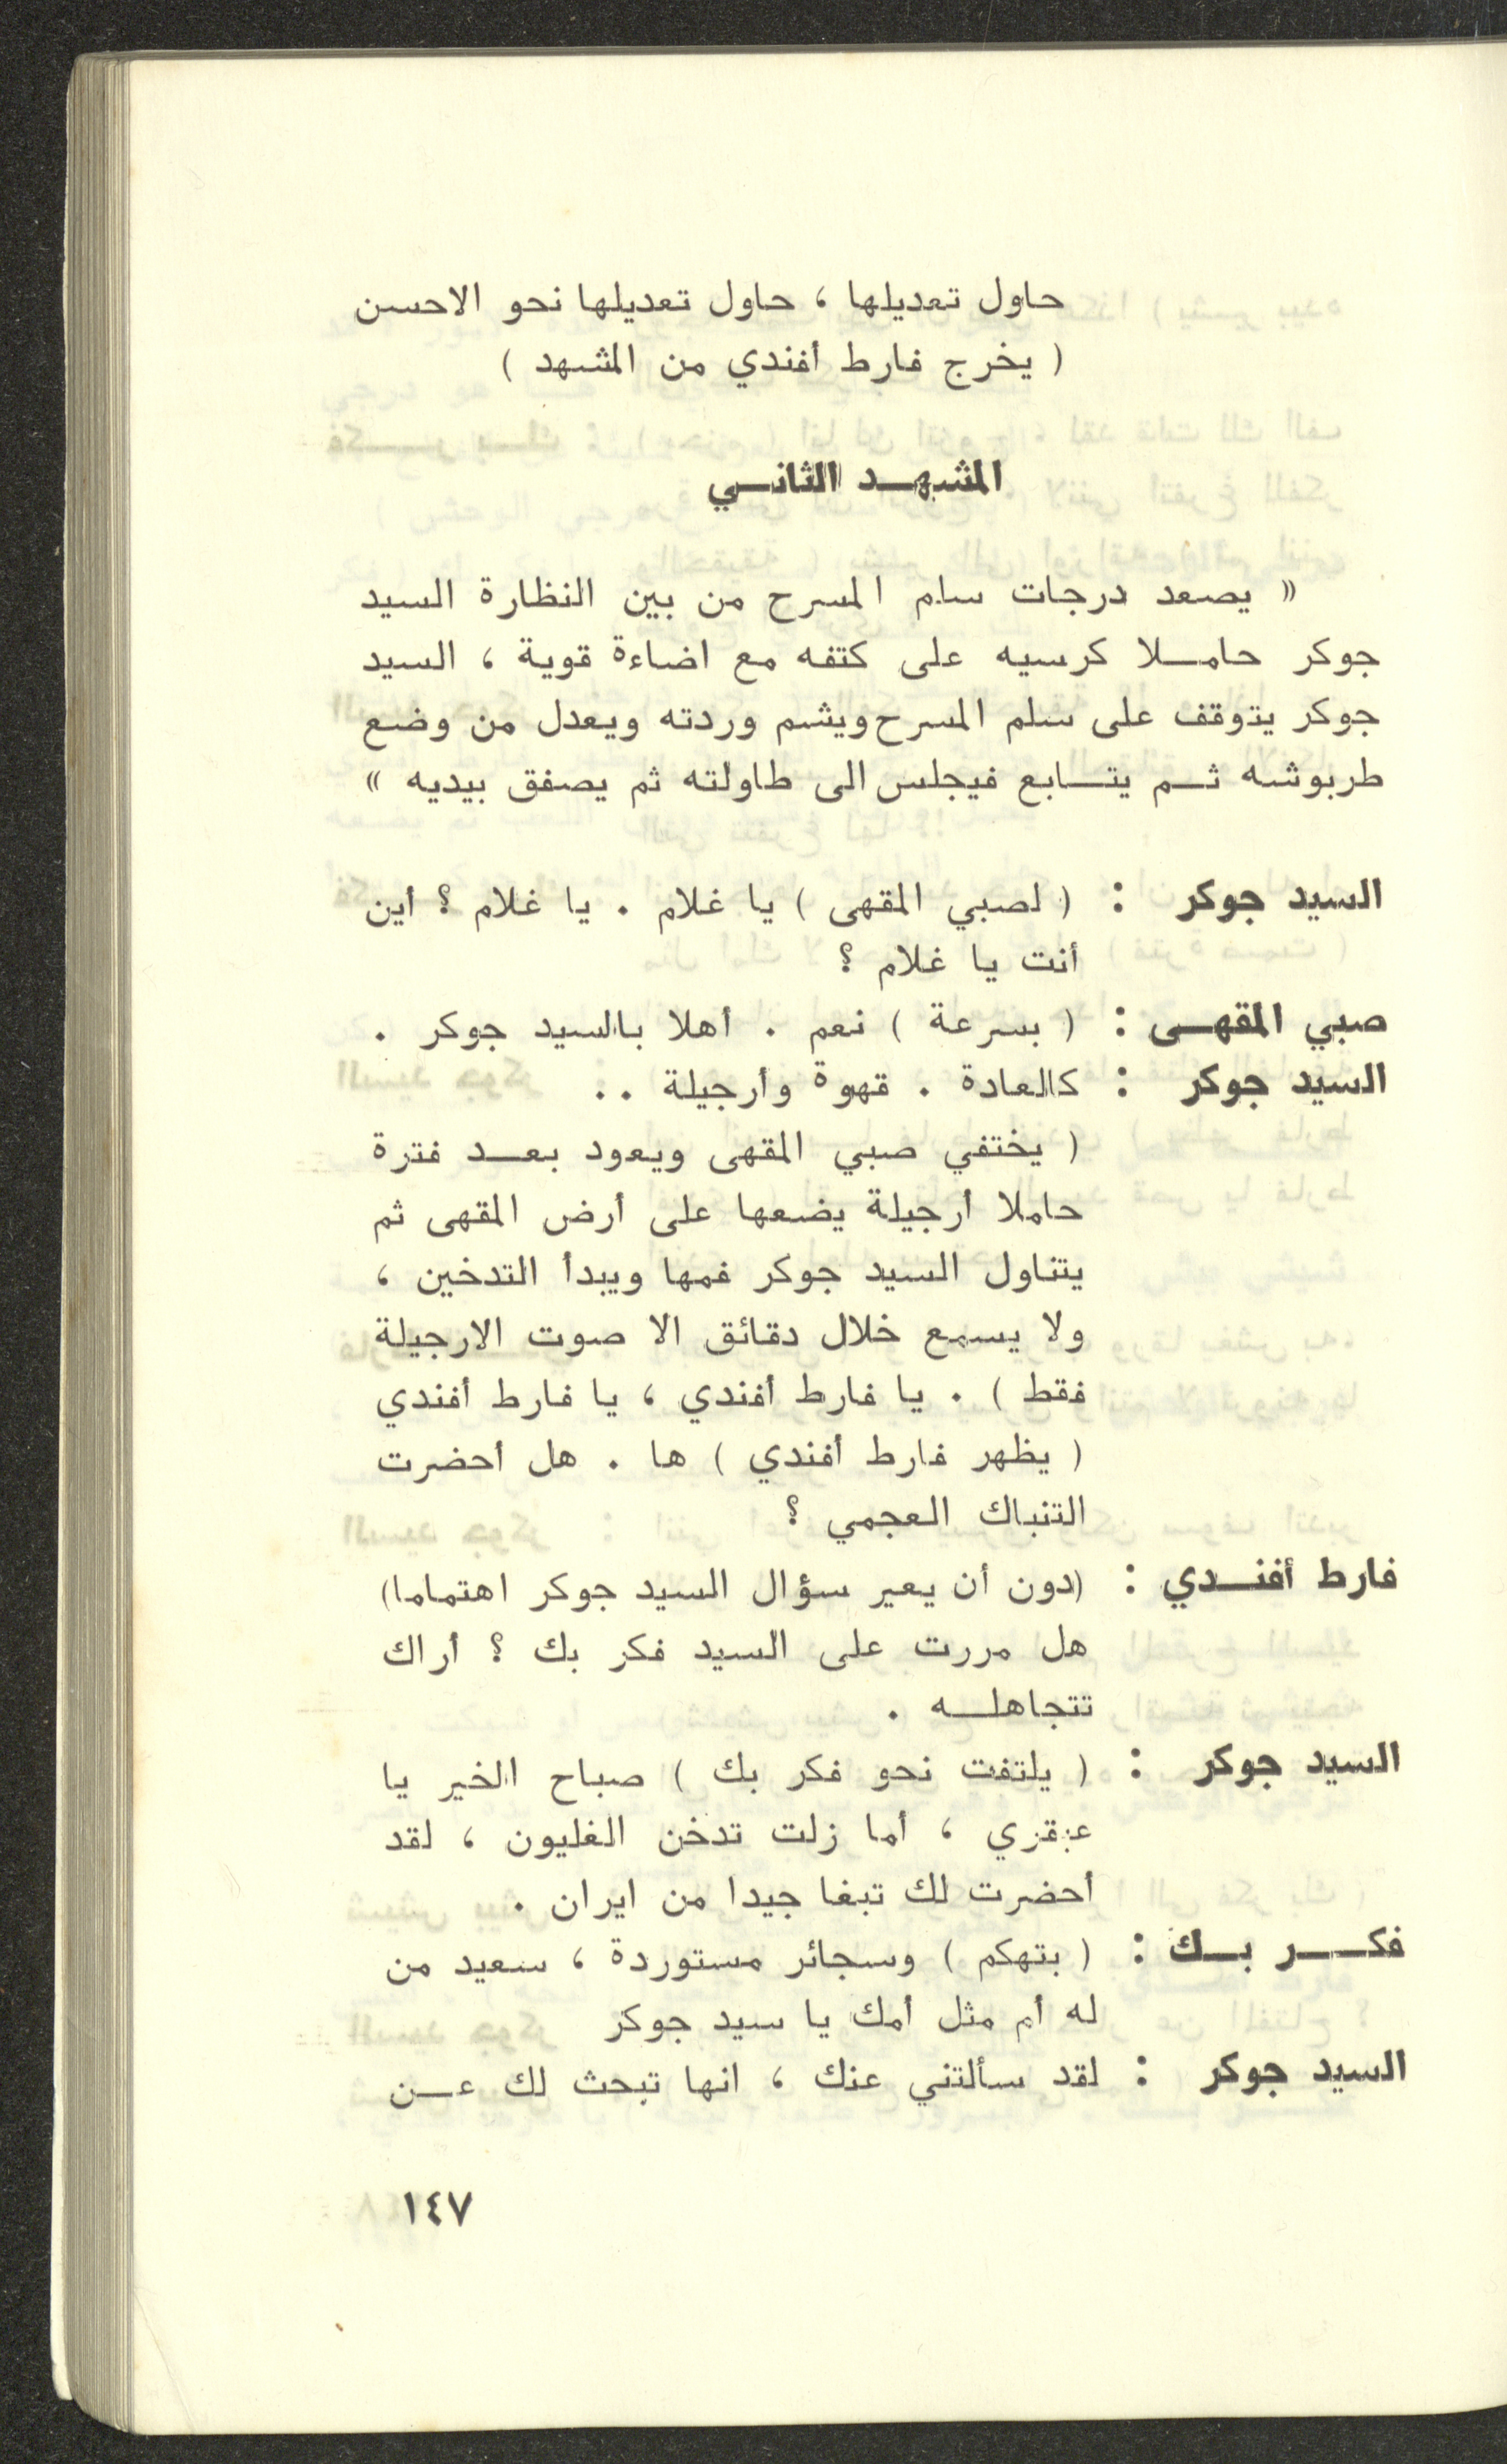 حاول تعديلها ، حاول تعديلها نحو الاحسن
( يخرج فارط أفندي من المشهد )
المشهد الثاني
« يصعد درجات سلم المسرح من بين النظارة السيد
جوكر حاملا كرسيه على كتفه مع اضاءة قوية ، السيد
جوكر يتوقف على سلم المسرح ويشم وردته ويعدل من وضع
طربوشه ثم يتابع فيجلس الى طاولته ثم يصفق بيديه »
السيد جوكر : ( لصبي المقهى ) يا غلام . يا غلام ؟ أين
أنت يا غلام ؟
صبي المقهى : ( بسرعة ) نعم . أهلا بالسيد جوكر .
السيد جوكر : كالعادة . قهوة وأرجيلة ..
( يختفي صبي المقهى ويعود بعد فترة
حاملا أرجيلة يضعها على أرض المقهى ثم
يتناول السيد جوكر فمها ويبدأ التدخين ،
ولا يسمع خلال دقائق الا صوت الارجيلة
فقط ) . يا فارط أفندي ، يا فارط أفندي
( يظهر فارط أفندي ) ها . هل أحضرت
التنباك العجمي ؟
فارط أفندي : (دون أن يعير سؤال السيد جوكر اهتماما)
هل مررت على السيد فكر بك ؟ أراك
تتجاهله .
السيد جوكر : ( يلتفت نحو فكر بك ) صباح الخير يا
عبقري ، أما زلت تدخن الغليون ، لقد
أحضرت لك تبغا جيدا من ايران .
فكر بك : ( بتهكم ) وسجائر مستوردة ، سعيد من
له أم مثل أمك يا سيد جوكر
السيد جوكر : لقد سألتني عنك ، انها تبحث لك عن
١٤٧